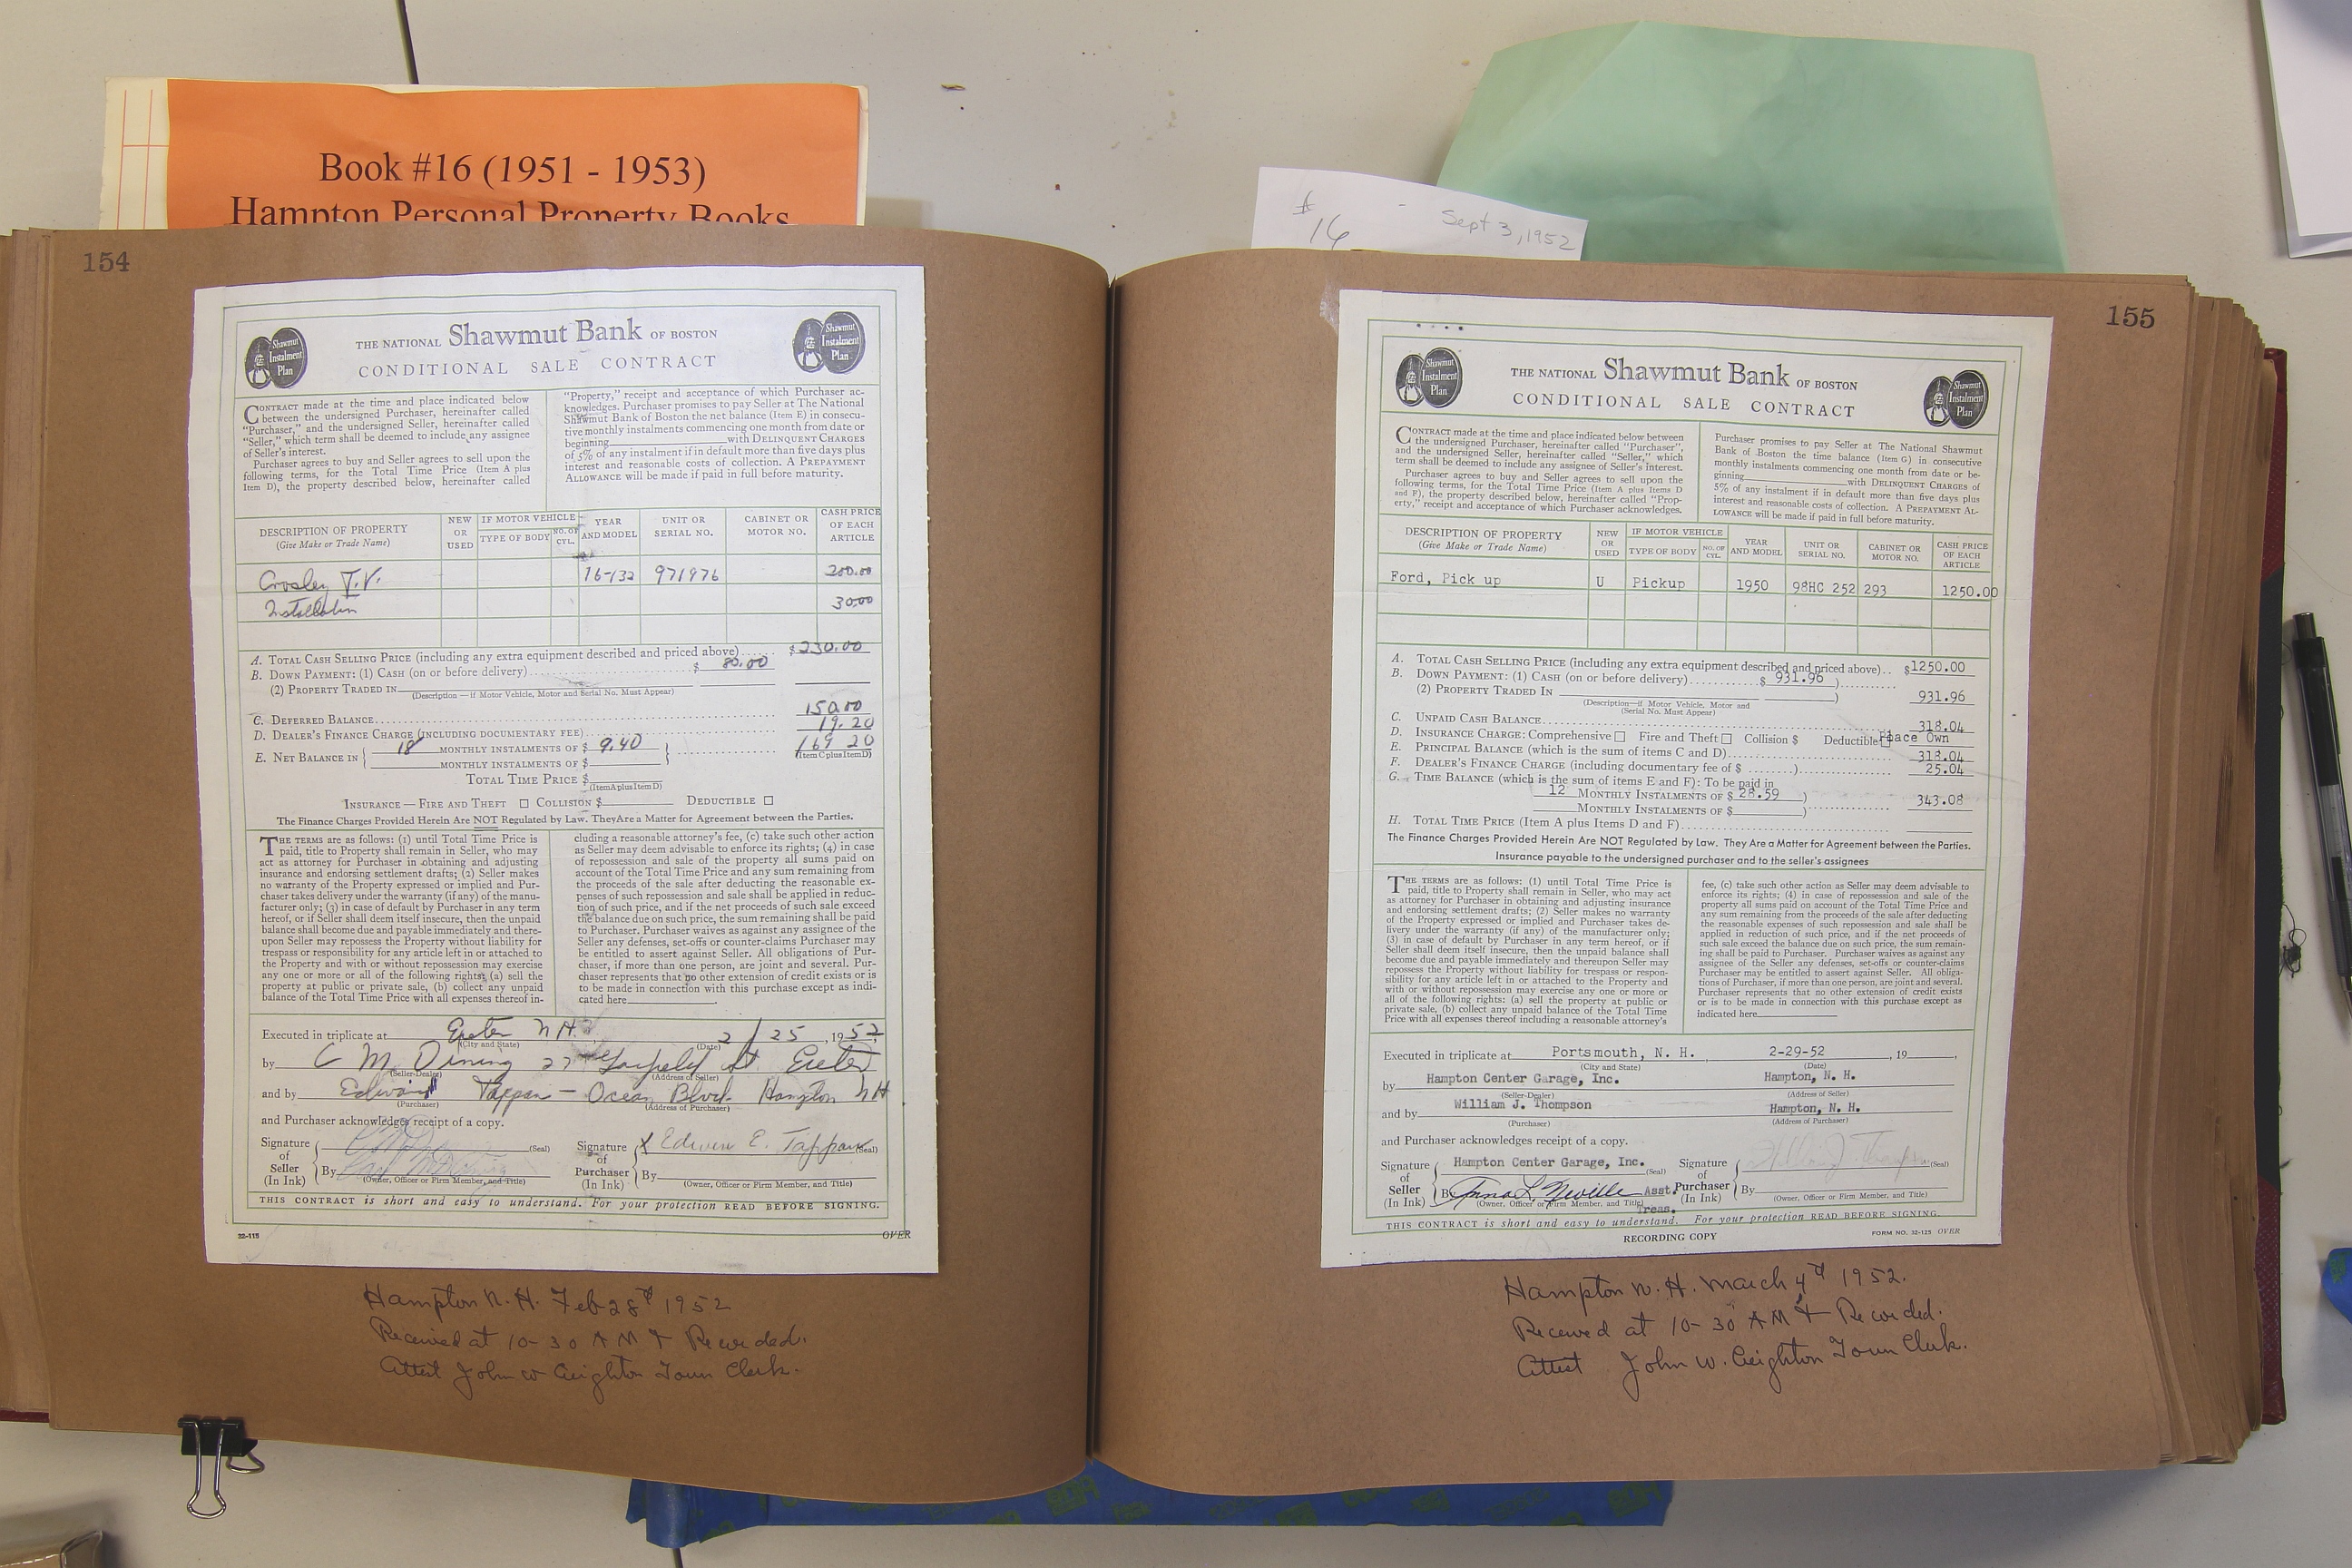 Book #16 (1951 - 1953)
Hampton Personal Property Books
# 16 - Sept 3, 1952
154
Shawmut Instalment Plan
THE NATIONAL Shawmut Bank OF BOSTON
CONDITIONAL SALE CONTRACT
Shawmut Instalment Plan
CONTRACT made at the time and place indicated below
between the undersigned Purchaser, hereinafter called
"Purchaser," and the undersigned Seller, hereinafter called
"Seller," which term shall be deemed to include any assignee
of Seller's interest.
Purchaser agrees to buy and Seller agrees to sell upon the
following terms, for the Total Time Price (Item A plus
Item D), the property described below, hereinafter called
"Property," receipt and acceptance of which Purchaser ac-
knowledges. Purchaser promises to pay Seller at The National
Shawmut Bank of Boston the net balance (Item E) in consecu-
tive monthly instalments commencing one month from date or
beginning with DELINQUENT CHARGES
of 5% of any instalment if in default more than five days plus
interest and reasonable costs of collection. A PREPAYMENT
ALLOWANCE will be made if paid in full before maturity.
DESCRIPTION OF PROPERTY (Give Make or Trade Name) NEW OR USED IF MOTOR VEHICLE TYPE OF BODY NO. OF CYL. YEAR AND MODEL UNIT OR SERIAL NO. CABINET OR MOTOR NO. CASH PRICE OF EACH ARTICLE
Crosley T.V. 16-132 971976 200.00
Installation 30.00
A. TOTAL CASH SELLING PRICE (including any extra equipment described and priced above) $230.00
B. DOWN PAYMENT: (1) CASH (on or before delivery) $ 80.00
(2) PROPERTY TRADED IN
(Description—if Motor Vehicle, Motor and Serial No. Must Appear)
C. DEFERRED BALANCE 150.00
D. DEALER'S FINANCE CHARGE (INCLUDING DOCUMENTARY FEE) 19.20
E. NET BALANCE IN 18 MONTHLY INSTALMENTS OF $ 9.40 169 20
MONTHLY INSTALMENTS OF $ (Item C plus Item D)
TOTAL TIME PRICE $
(Item A plus Item D)
INSURANCE — FIRE AND THEFT COLLISION $ DEDUCTIBLE
The Finance Charges Provided Herein Are NOT Regulated by Law. They Are a Matter for Agreement between the Parties.
THE TERMS are as follows: (1) until Total Time Price is
paid, title to Property shall remain in Seller, who may
act as attorney for Purchaser in obtaining and adjusting
insurance and endorsing settlement drafts; (2) Seller makes
no warranty of the Property expressed or implied and Pur-
chaser takes delivery under the warranty (if any) of the manu-
facturer only; (3) in case of default by Purchaser in any term
hereof, or if Seller shall deem itself insecure, then the unpaid
balance shall become due and payable immediately and there-
upon Seller may repossess the Property without liability for
trespass or responsibility for any article left in or attached to
the Property and with or without repossession may exercise
any one or more or all of the following rights: (a) sell the
property at public or private sale, (b) collect any unpaid
balance of the Total Time Price with all expenses thereof in-
cluding a reasonable attorney's fee, (c) take such other action
as Seller may deem advisable to enforce its rights; (4) in case
of repossession and sale of the property all sums paid on
account of the Total Time Price and any sum remaining from
the proceeds of the sale after deducting the reasonable ex-
penses of such repossession and sale shall be applied in reduc-
tion of such price, and if the net proceeds of such sale exceed
the balance due on such price, the sum remaining shall be paid
to Purchaser. Purchaser waives as against any assignee of the
Seller any defenses, set-offs or counter-claims Purchaser may
be entitled to assert against Seller. All obligations of Pur-
chaser, if more than one person, are joint and several. Pur-
chaser represents that no other extension of credit exists or is
to be made in connection with this purchase except as indi-
cated here
Executed in triplicate at Exeter N H. 2 / 25, 1952
(City and State) (Date)
by C M. Dining 27 St Exeter
(Seller-Dealer) (Address of Seller)
and by Edwin Tappan — Ocean Blvd. Hampton NH
(Purchaser) (Address of Purchaser)
and Purchaser acknowledges receipt of a copy.
Signature of Seller (In Ink) (Seal)
By
(Owner, Officer or Firm Member, and Title)
Signature of Purchaser (In Ink) X Edwin E. Tappan (Seal)
By
(Owner, Officer or Firm Member, and Title)
THIS CONTRACT is short and easy to understand. For your protection READ BEFORE SIGNING.
32-115 OVER
Hampton N. H. Feb 28th 1952
Received at 10-30 AM & Recorded.
Attest John W Creighton Town Clerk.
155
Shawmut Instalment Plan
THE NATIONAL Shawmut Bank OF BOSTON
CONDITIONAL SALE CONTRACT
Shawmut Instalment Plan
CONTRACT made at the time and place indicated below between
the undersigned Purchaser, hereinafter called "Purchaser",
and the undersigned Seller, hereinafter called "Seller," which
term shall be deemed to include any assignee of Seller's interest.
Purchaser agrees to buy and Seller agrees to sell upon the
following terms, for the Total Time Price (Item A plus Items D
and F), the property described below, hereinafter called "Prop-
erty," receipt and acceptance of which Purchaser acknowledges.
Purchaser promises to pay Seller at The National Shawmut
Bank of Boston the time balance (Item G) in consecutive
monthly instalments commencing one month from date or be-
ginning with DELINQUENT CHARGES of
5% of any instalment if in default more than five days plus
interest and reasonable costs of collection. A PREPAYMENT AL-
LOWANCE will be made if paid in full before maturity.
DESCRIPTION OF PROPERTY (Give Make or Trade Name) NEW OR USED IF MOTOR VEHICLE TYPE OF BODY NO. OF CYL. YEAR AND MODEL UNIT OR SERIAL NO. CABINET OR MOTOR NO. CASH PRICE OF EACH ARTICLE
Ford, Pick up U Pickup 1950 98HC 252 293 1250.00
A. TOTAL CASH SELLING PRICE (including any extra equipment described and priced above) $1250.00
B. DOWN PAYMENT: (1) CASH (on or before delivery) $ 931.96
(2) PROPERTY TRADED IN 931.96
(Description—if Motor Vehicle, Motor and Serial No. Must Appear)
C. UNPAID CASH BALANCE 318.04
D. INSURANCE CHARGE: Comprehensive Fire and Theft Collision $ Deductible Place Own
E. PRINCIPAL BALANCE (which is the sum of items C and D) 318.04
F. DEALER'S FINANCE CHARGE (including documentary fee of $ ) 25.04
G. TIME BALANCE (which is the sum of items E and F): To be paid in
12 MONTHLY INSTALMENTS OF $ 28.59 343.08
MONTHLY INSTALMENTS OF $
H. TOTAL TIME PRICE (Item A plus Items D and F)
The Finance Charges Provided Herein Are NOT Regulated by Law. They Are a Matter for Agreement between the Parties.
Insurance payable to the undersigned purchaser and to the seller's assignees
THE TERMS are as follows: (1) until Total Time Price is
paid, title to Property shall remain in Seller, who may act
as attorney for Purchaser in obtaining and adjusting insurance
and endorsing settlement drafts; (2) Seller makes no warranty
of the Property expressed or implied and Purchaser takes de-
livery under the warranty (if any) of the manufacturer only;
(3) in case of default by Purchaser in any term hereof, or if
Seller shall deem itself insecure, then the unpaid balance shall
become due and payable immediately and thereupon Seller may
repossess the Property without liability for trespass or respon-
sibility for any article left in or attached to the Property and
with or without repossession may exercise any one or more or
all of the following rights: (a) sell the property at public or
private sale, (b) collect any unpaid balance of the Total Time
Price with all expenses thereof including a reasonable attorney's
fee, (c) take such other action as Seller may deem advisable to
enforce its rights; (4) in case of repossession and sale of the
property all sums paid on account of the Total Time Price and
any sum remaining from the proceeds of the sale after deducting
the reasonable expenses of such repossession and sale shall be
applied in reduction of such price, and if the net proceeds of
such sale exceed the balance due on such price, the sum remain-
ing shall be paid to Purchaser. Purchaser waives as against any
assignee of the Seller any defenses, set-offs or counter-claims
Purchaser may be entitled to assert against Seller. All obliga-
tions of Purchaser, if more than one person, are joint and several.
Purchaser represents that no other extension of credit exists
or is to be made in connection with this purchase except as
indicated here
Executed in triplicate at Portsmouth, N. H. , 2-29-52 , 19 ,
(City and State) (Date)
by Hampton Center Garage, Inc. Hampton, N. H.
(Seller-Dealer) (Address of Seller)
and by William J. Thompson Hampton, N. H.
(Purchaser) (Address of Purchaser)
and Purchaser acknowledges receipt of a copy.
Signature of Seller (In Ink) Hampton Center Garage, Inc. (Seal)
By Anna L. Neville Asst. Treas.
(Owner, Officer or Firm Member, and Title)
Signature of Purchaser (In Ink) William J. Thompson (Seal)
By
(Owner, Officer or Firm Member, and Title)
THIS CONTRACT is short and easy to understand. For your protection READ BEFORE SIGNING.
RECORDING COPY FORM NO. 32-125 OVER
Hampton N. H. March 4th 1952.
Received at 10-30 AM & Recorded.
Attest John W. Creighton Town Clerk.